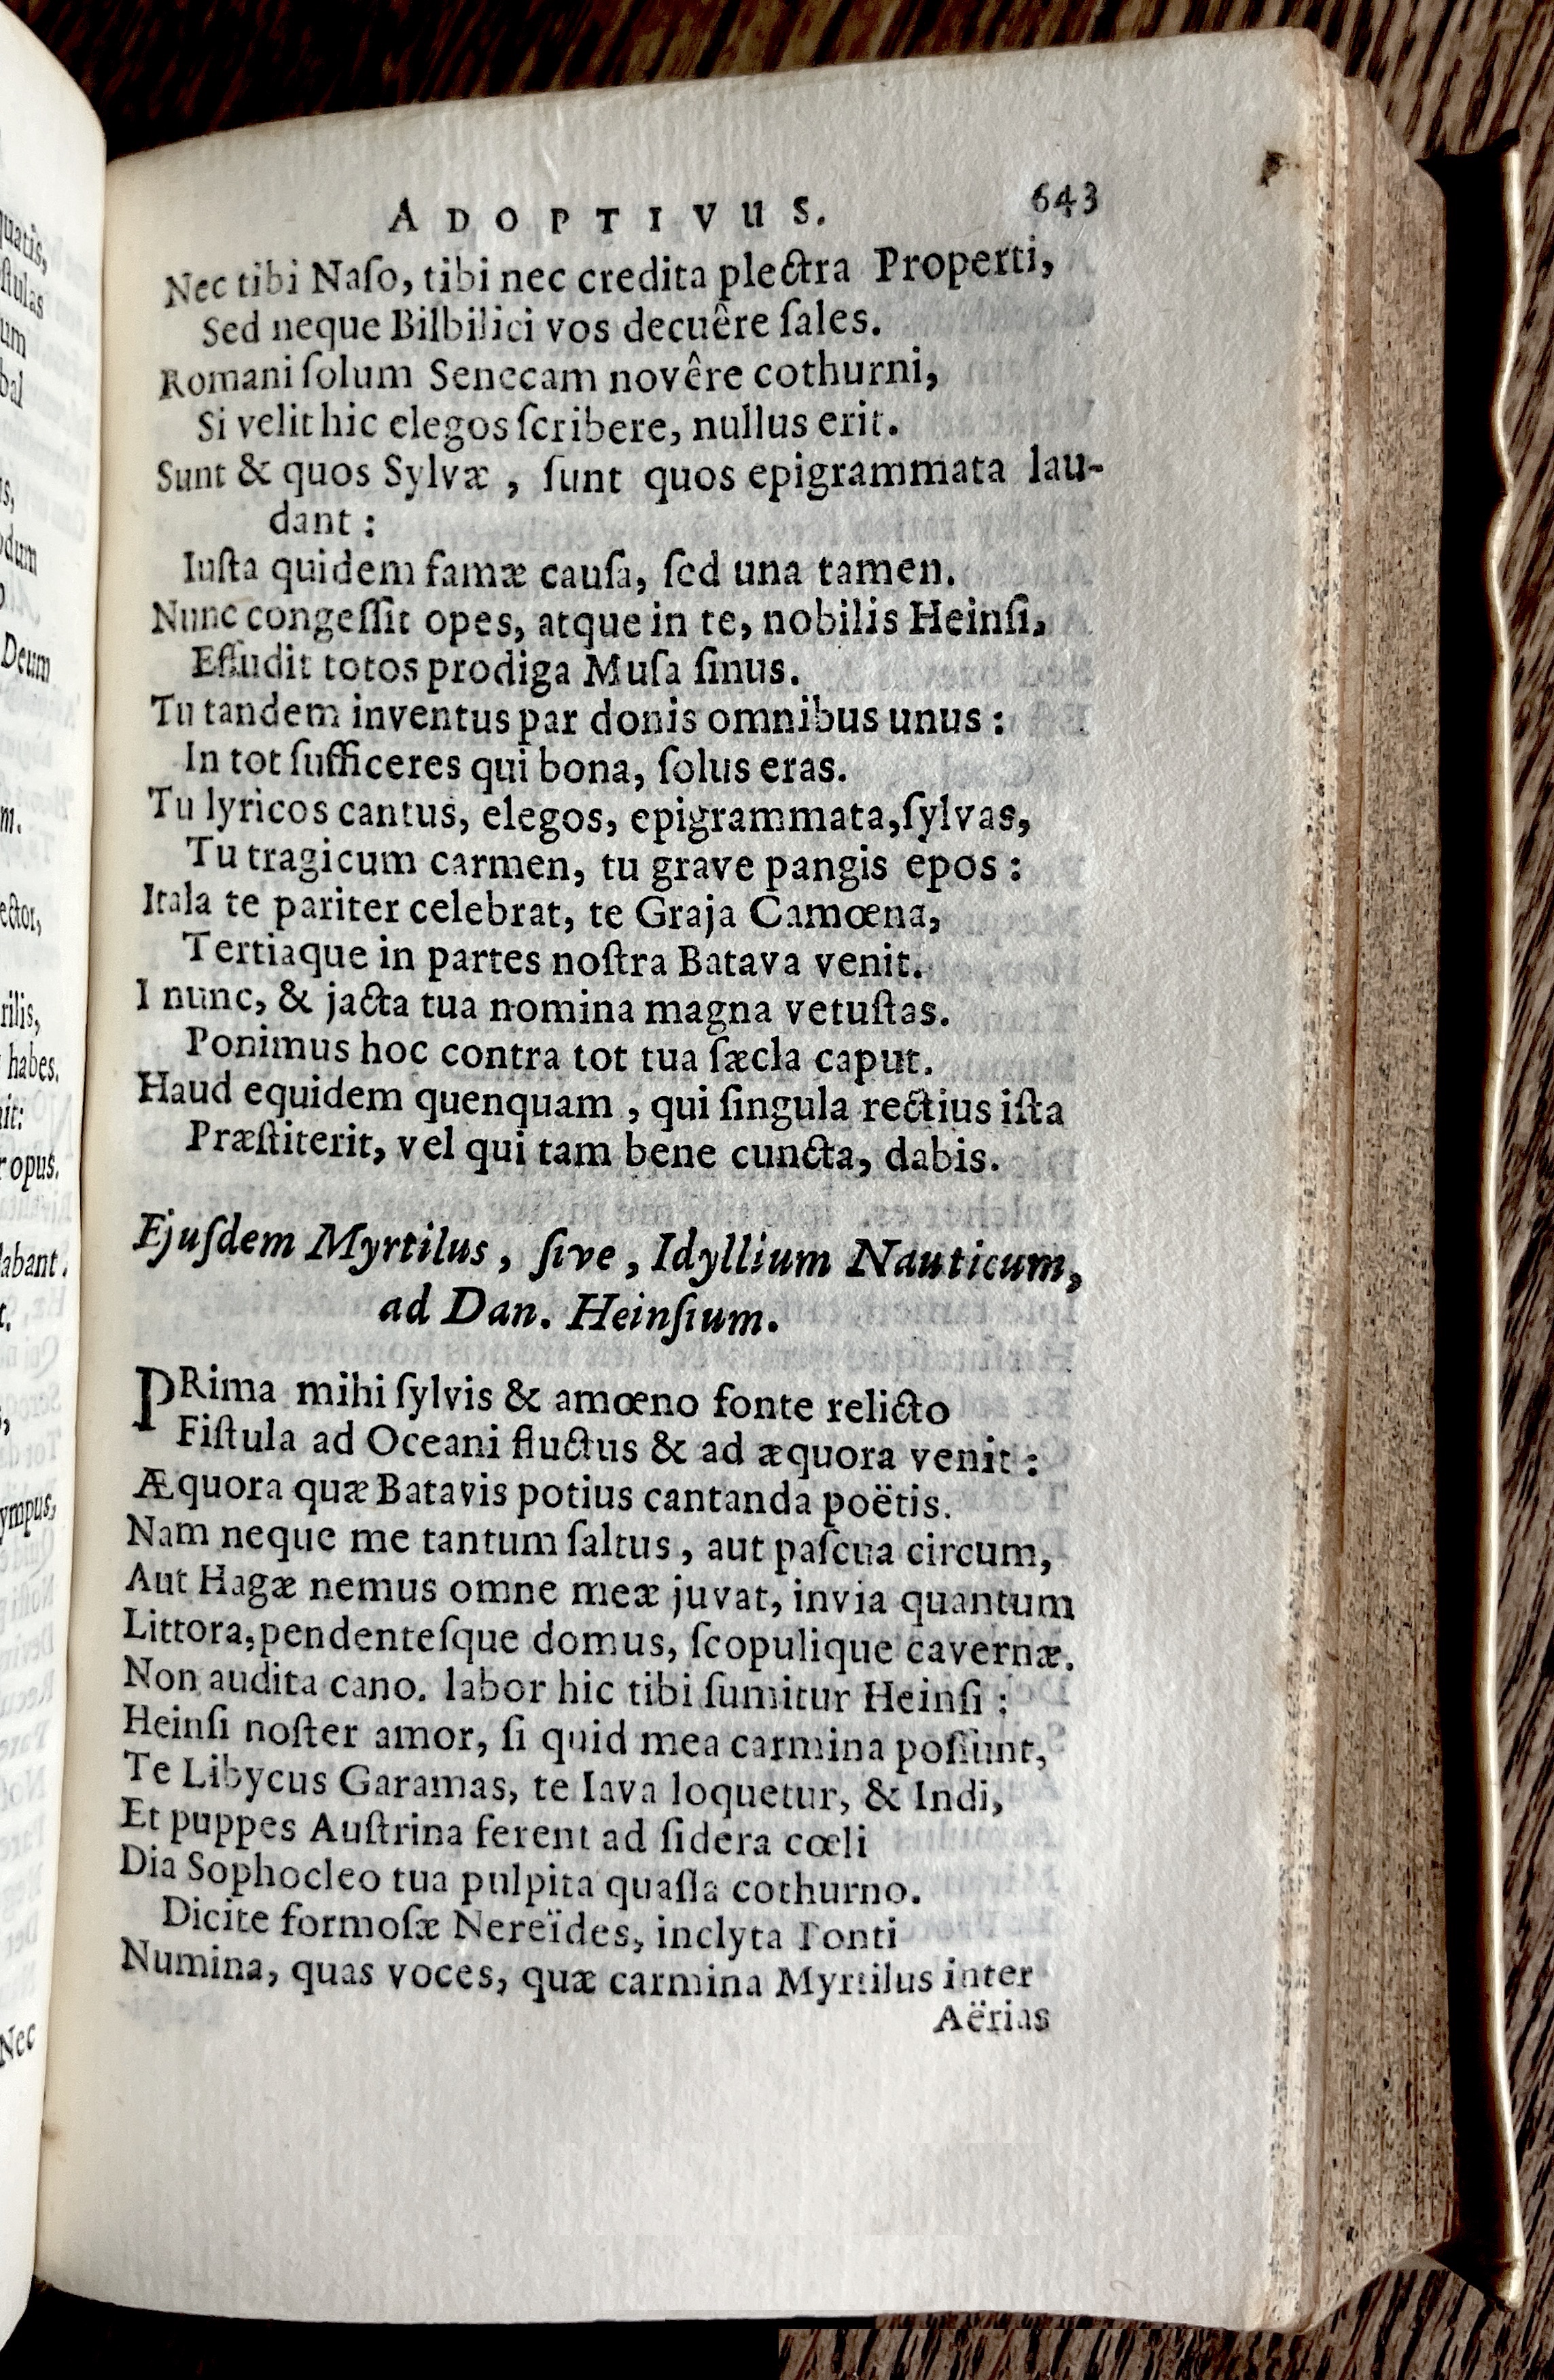 quatis,
ſtulas
um
bal
s,
odum
o
Deum
m.
ector,
rilis,
habes.
nit:
r opus.
labant.
t.
s,
ympus,
Nec
ADOPTIVUS. 643
Nec tibi Naſo, tibi nec credita plectra Properti,
Sed neque Bilbilici vos decuêre ſales.
Romani ſolum Senecam novêre cothurni,
Si velit hic elegos ſcribere, nullus erit.
Sunt & quos Sylvæ, ſunt quos epigrammata lau-
dant:
Iuſta quidem famæ cauſa, ſed una tamen.
Nunc congeſſit opes, atque in te, nobilis Heinſi,
Effudit totos prodiga Muſa ſinus.
Tu tandem inventus par donis omnibus unus:
In tot ſufficeres qui bona, ſolus eras.
Tu lyricos cantus, elegos, epigrammata, ſylvas,
Tu tragicum carmen, tu grave pangis epos:
Itala te pariter celebrat, te Graja Camœna,
Tertiaque in partes noſtra Batava venit.
I nunc, & jacta tua nomina magna vetuſtas.
Ponimus hoc contra tot tua ſæcla caput.
Haud equidem quenquam, qui ſingula rectius iſta
Præſtiterit, vel qui tam bene cuncta, dabis.
Ejuſdem Myrtilus, ſive, Idyllium Nauticum,
ad Dan. Heinſium.
PRima mihi ſylvis & amœno fonte relicto
Fiſtula ad Oceani fluctus & ad æquora venit:
Æquora quæ Batavis potius cantanda poëtis.
Nam neque me tantum ſaltus, aut paſcua circum,
Aut Hagæ nemus omne meæ juvat, invia quantum
Littora, pendenteſque domus, ſcopulique cavernæ.
Non audita cano. labor hic tibi ſumitur Heinſi:
Heinſi noſter amor, ſi quid mea carmina poſſunt,
Te Libycus Garamas, te Iava loquetur, & Indi,
Et puppes Auſtrina ferent ad ſidera cœli
Dia Sophocleo tua pulpita quaſſa cothurno.
Dicite formoſæ Nereïdes, inclyta Ponti
Numina, quas voces, quæ carmina Myrtilus inter
Aërias